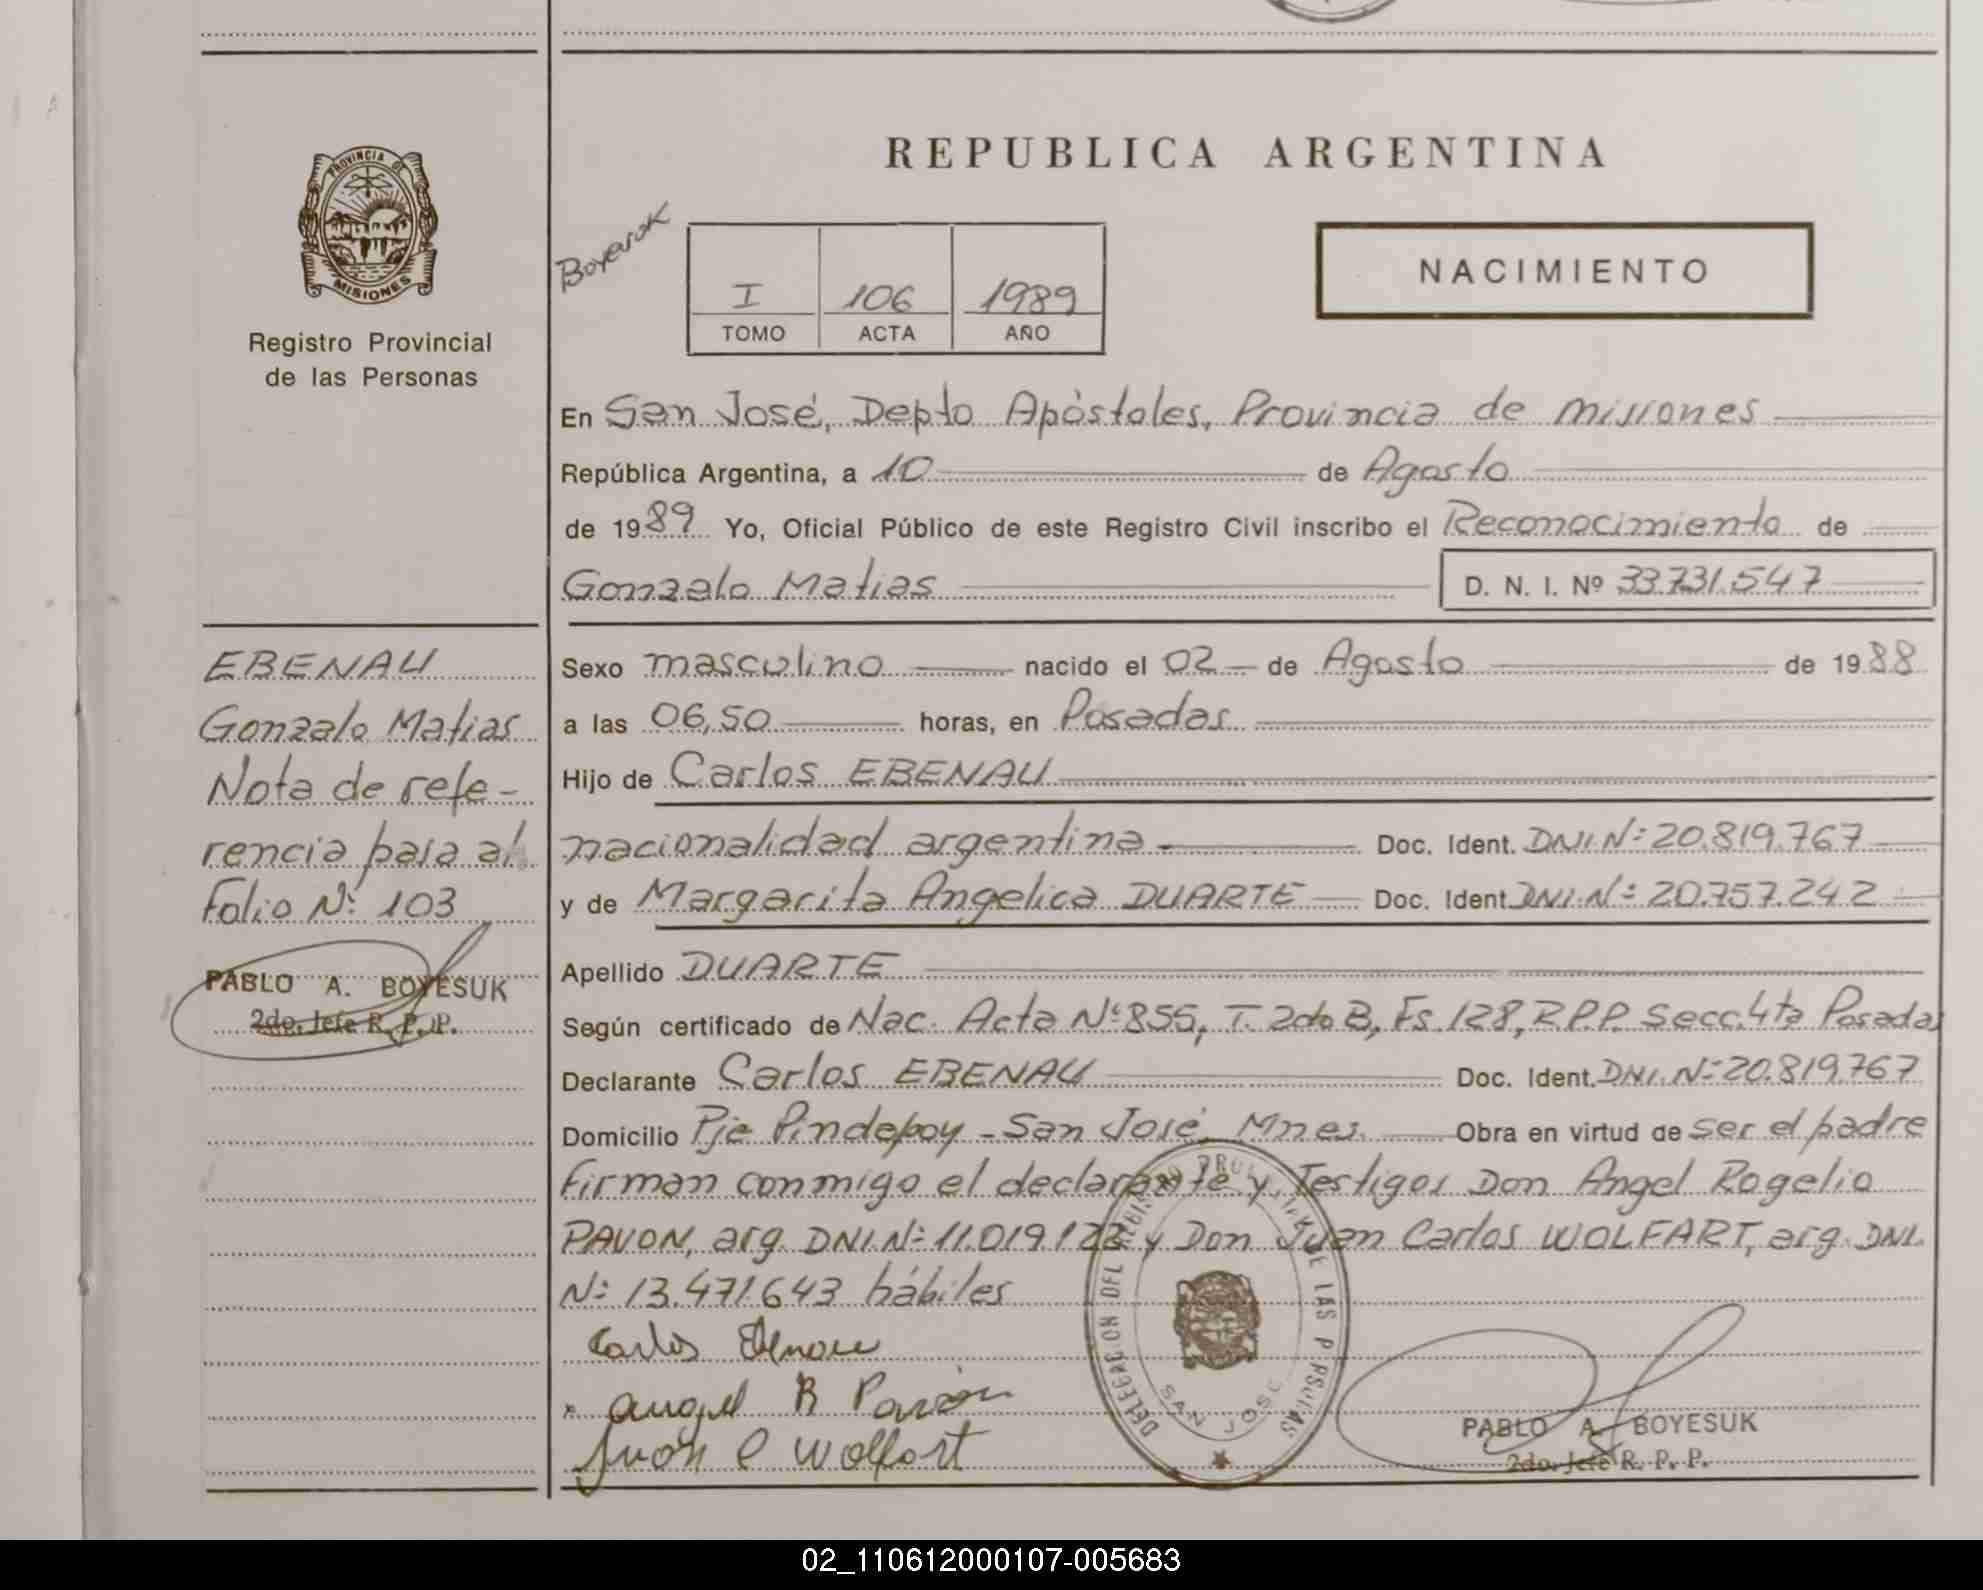 REPUBLICA ARGENTINA
PROVINCIA DE MISIONES
Registro Provincial
de las Personas
Boyesuk
I 106 1989
TOMO ACTA AÑO
NACIMIENTO
En San José, Depto Apóstoles, Provincia de Misiones
República Argentina, a 10 de Agosto
de 1989 Yo, Oficial Público de este Registro Civil inscribo el Reconocimiento de
Gonzalo Matias D. N. I. Nº 33.731.547
EBENAU
Gonzalo Matias
Nota de refe-
rencia para al
Folio Nº 103
PABLO A. BOYESUK
2do. Jefe R. P. P.
Sexo masculino nacido el 02 de Agosto de 1988
a las 06,50 horas, en Posadas
Hijo de Carlos EBENAU
nacionalidad argentina Doc. Ident. DNI.Nº 20.819.767
y de Margarita Angelica DUARTE Doc. Ident DNI.Nº 20.757.242
Apellido DUARTE
Según certificado de Nac. Acta Nº 855, T. 2do B, Fs. 128, R.P.P. Secc. 4ta Posadas
Declarante Carlos EBENAU Doc. Ident. DNI.Nº 20.819.767
Domicilio Pje Pindapoy - San José, Mnes. Obra en virtud de ser el padre
firman conmigo el declarante y Testigos Don Angel Rogelio
PAVON, arg. DNI.Nº 11.019.122 y Don Juan Carlos WOLFART, arg. DNI.
Nº 13.471.643 hábiles
Carlos Ebenau
Angel R Pavón
Juan C Wolfart
DELEGACION DEL REGISTRO PROVINCIAL DE LAS PERSONAS
SAN JOSE
PABLO A. BOYESUK
2do. Jefe R. P. P.
02_110612000107-005683